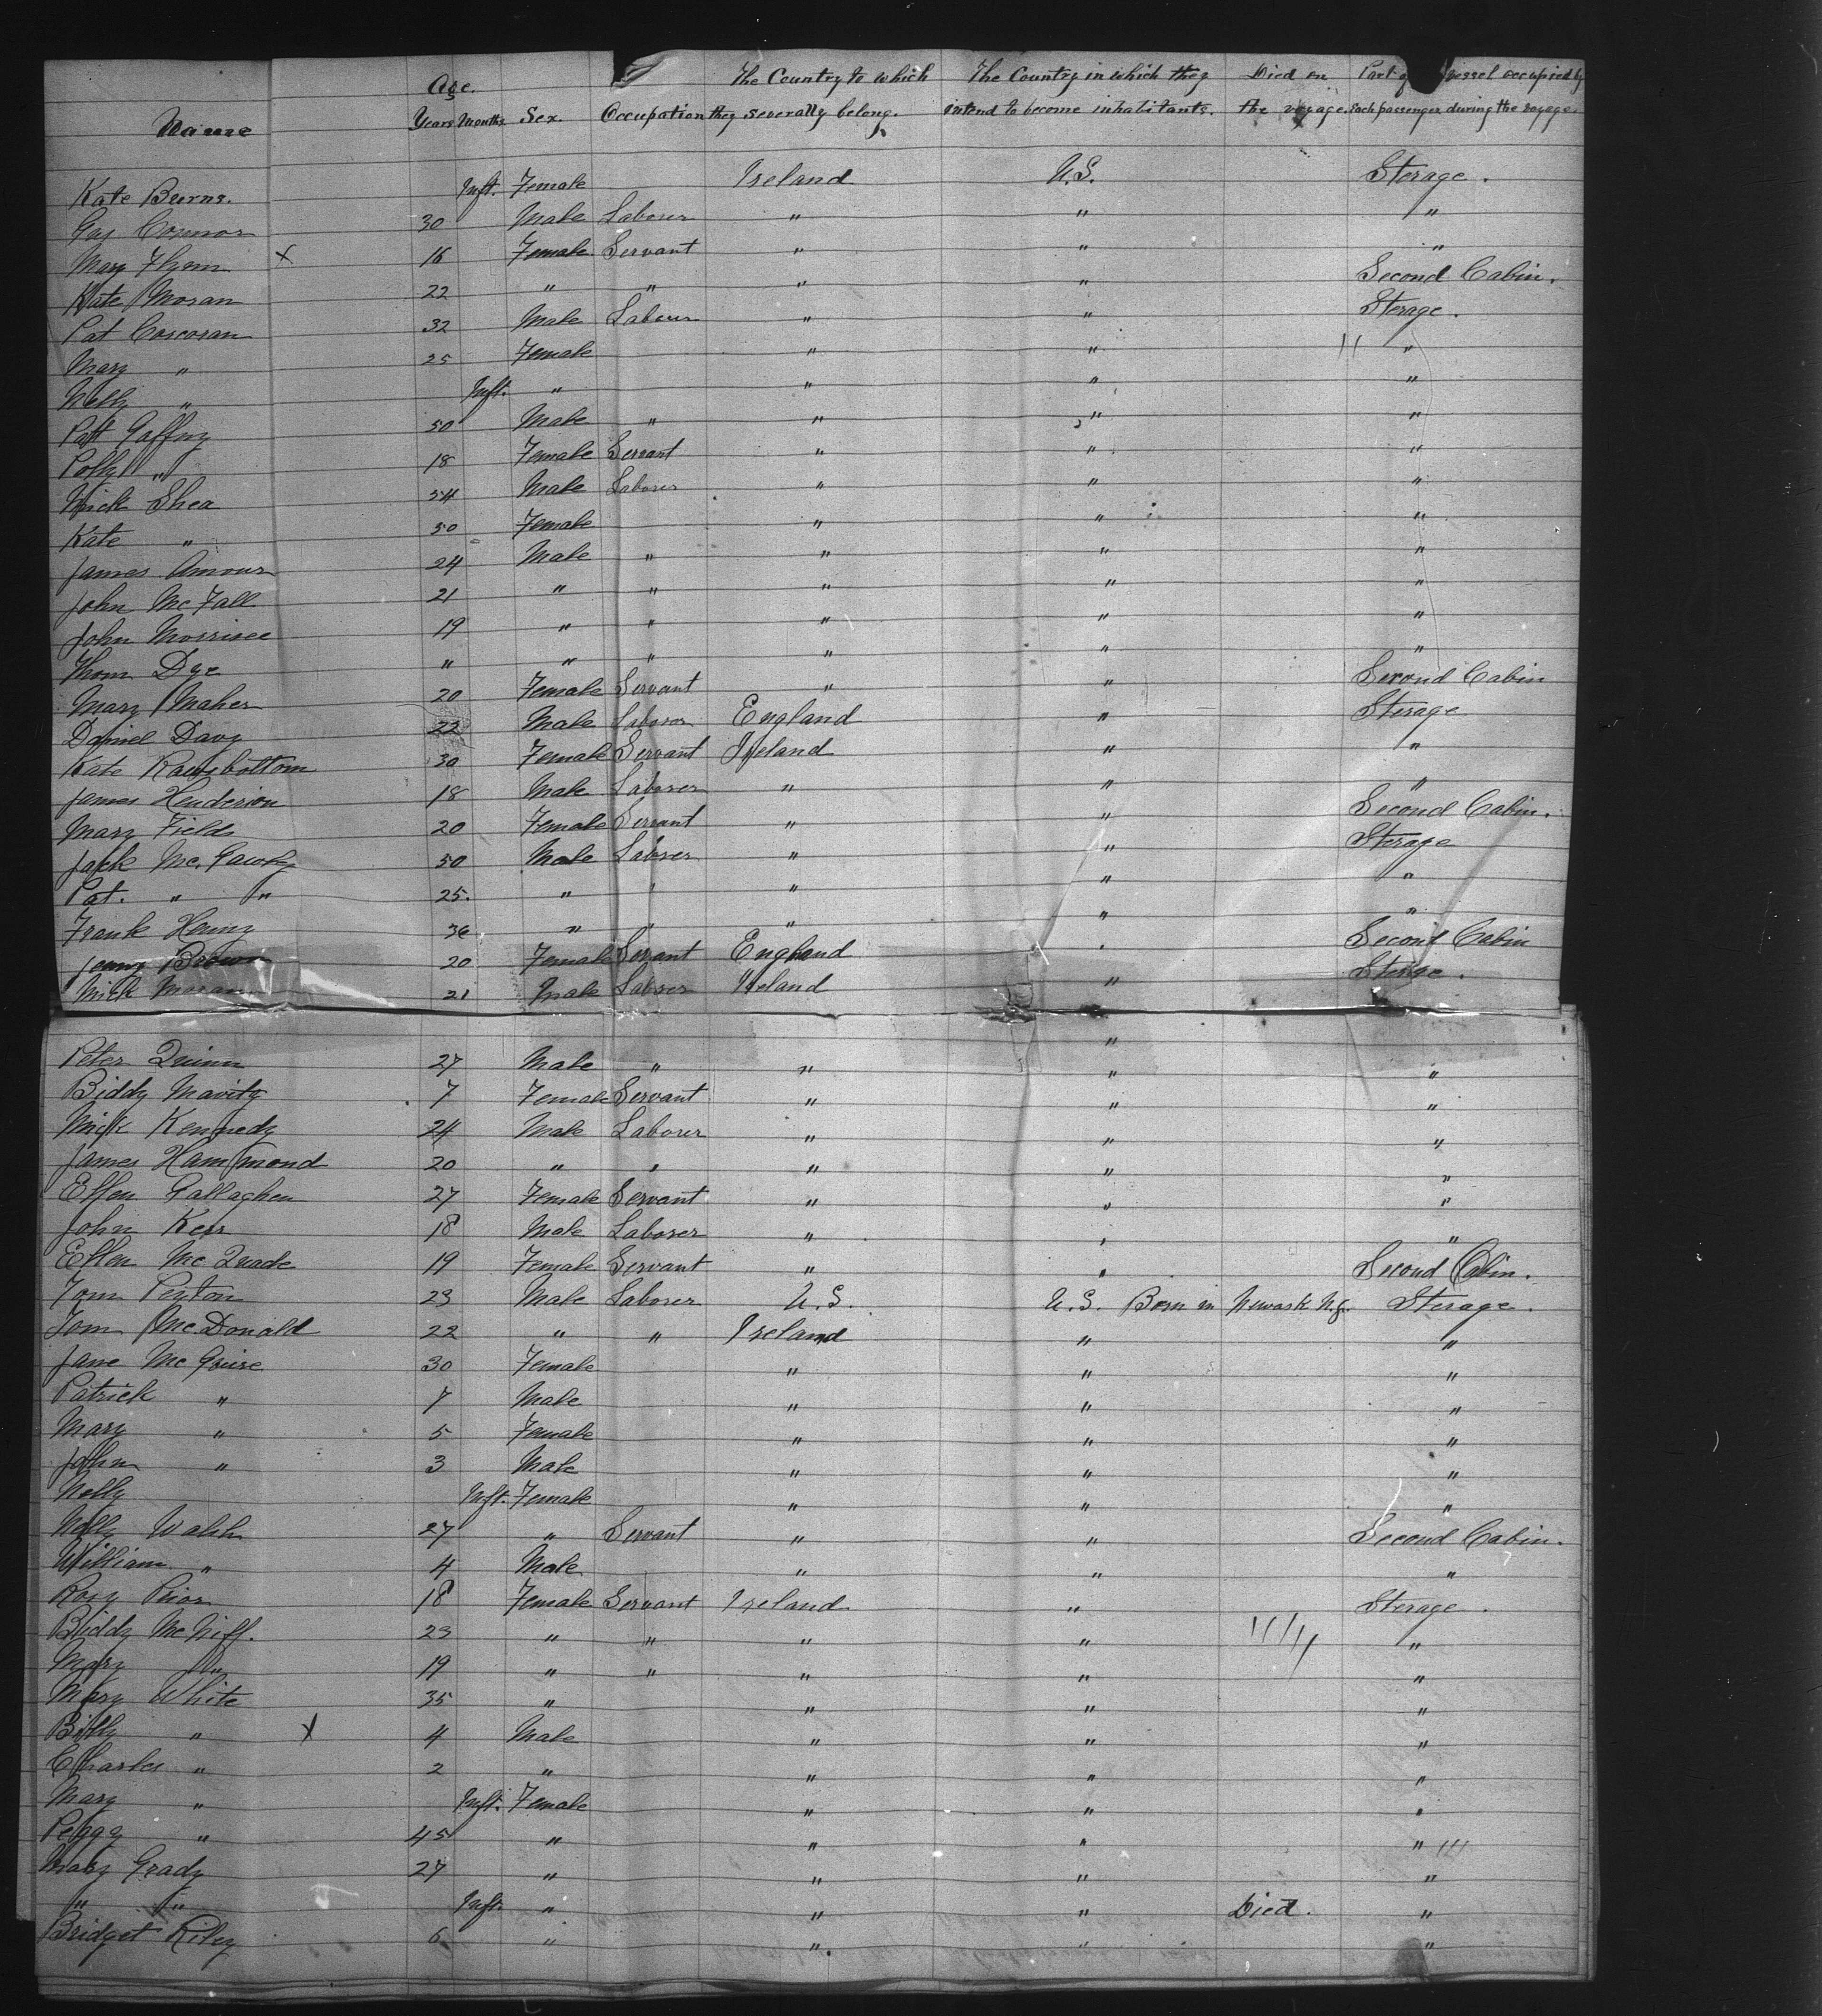 Name Age. Years Months Sex. Occupation The Country to which they severally belong. The Country in which they intend to become inhabitants. Died on the voyage. Part of vessel occupied by Each passenger during the voyage.
Kate Burns. Inft. Female Ireland U.S. Sterage.
Connor 30 Male Laborer " " "
Mary Flynn X 16 Female Servant " " "
Kate Moran 22 " " " " Second Cabin.
Pat Corcoran 32 Male Labour " " Sterage.
Mary " 25 Female " " "
Nelly " Inft. " " " "
Patt Gaffny 50 Male " " " "
Polly " 18 Female Servant " " "
Mick Shea 54 Male Laborer " " "
Kate " 50 Female " " "
James Amour 24 Male " " " "
John McFall 21 " " " " "
John Morrisee 19 " " " " "
Thom Dye " " " " " "
Mary Maher 20 Female Servant " " Second Cabin
Daniel Davy 22 Male Laborer England " Sterage
Kate Ramsbottom 30 Female Servant Ireland " "
James Henderson 18 Male Laborer " " "
Mary Fields 20 Female Servant " " Second Cabin.
Jack Mc. 50 Male Laborer " " Sterage
Pat. " " 25. " " " " "
Frank 36 " " " " "
Jenny Brown 20 Female Servant England " Second Cabin
Mick Moran 21 Male Laborer Ireland " Sterage.
Peter Quinn 27 Male " " " "
Biddy 7 Female Servant " " "
Mick Kennedy 24 Male Laborer " " "
James Hammond 20 " " " " "
Ellen Gallagher 27 Female Servant " " "
John Kerr 18 Male Laborer " " "
Ellen McQuade 19 Female Servant " " Second Cabin.
Tom 23 Male Laborer U.S. U.S. Born in Newark N.J. Sterage.
Tom McDonald 22 " " Ireland " "
Jane McGuire 30 Female " " "
Patrick " 7 Male " " "
Mary " 5 Female " " "
John " 3 Male " " "
Nelly Inft. Female " " "
Nelly Walsh 27 " Servant " " Second Cabin.
William " 4 Male " " "
Rosy Prior 18 Female Servant Ireland " Sterage.
Biddy McNiff. 23 " " " " "
Mary " 19 " " " " "
Mary White 35 " " " "
Billy " X 4 Male " " "
Charles " 2 " " " "
Mary " Inft. Female " " "
Peggy " 45 " " " "
Mary Grady 27 " " " "
" " Inft. " " " Died. "
Bridget Riley 6 " " " "